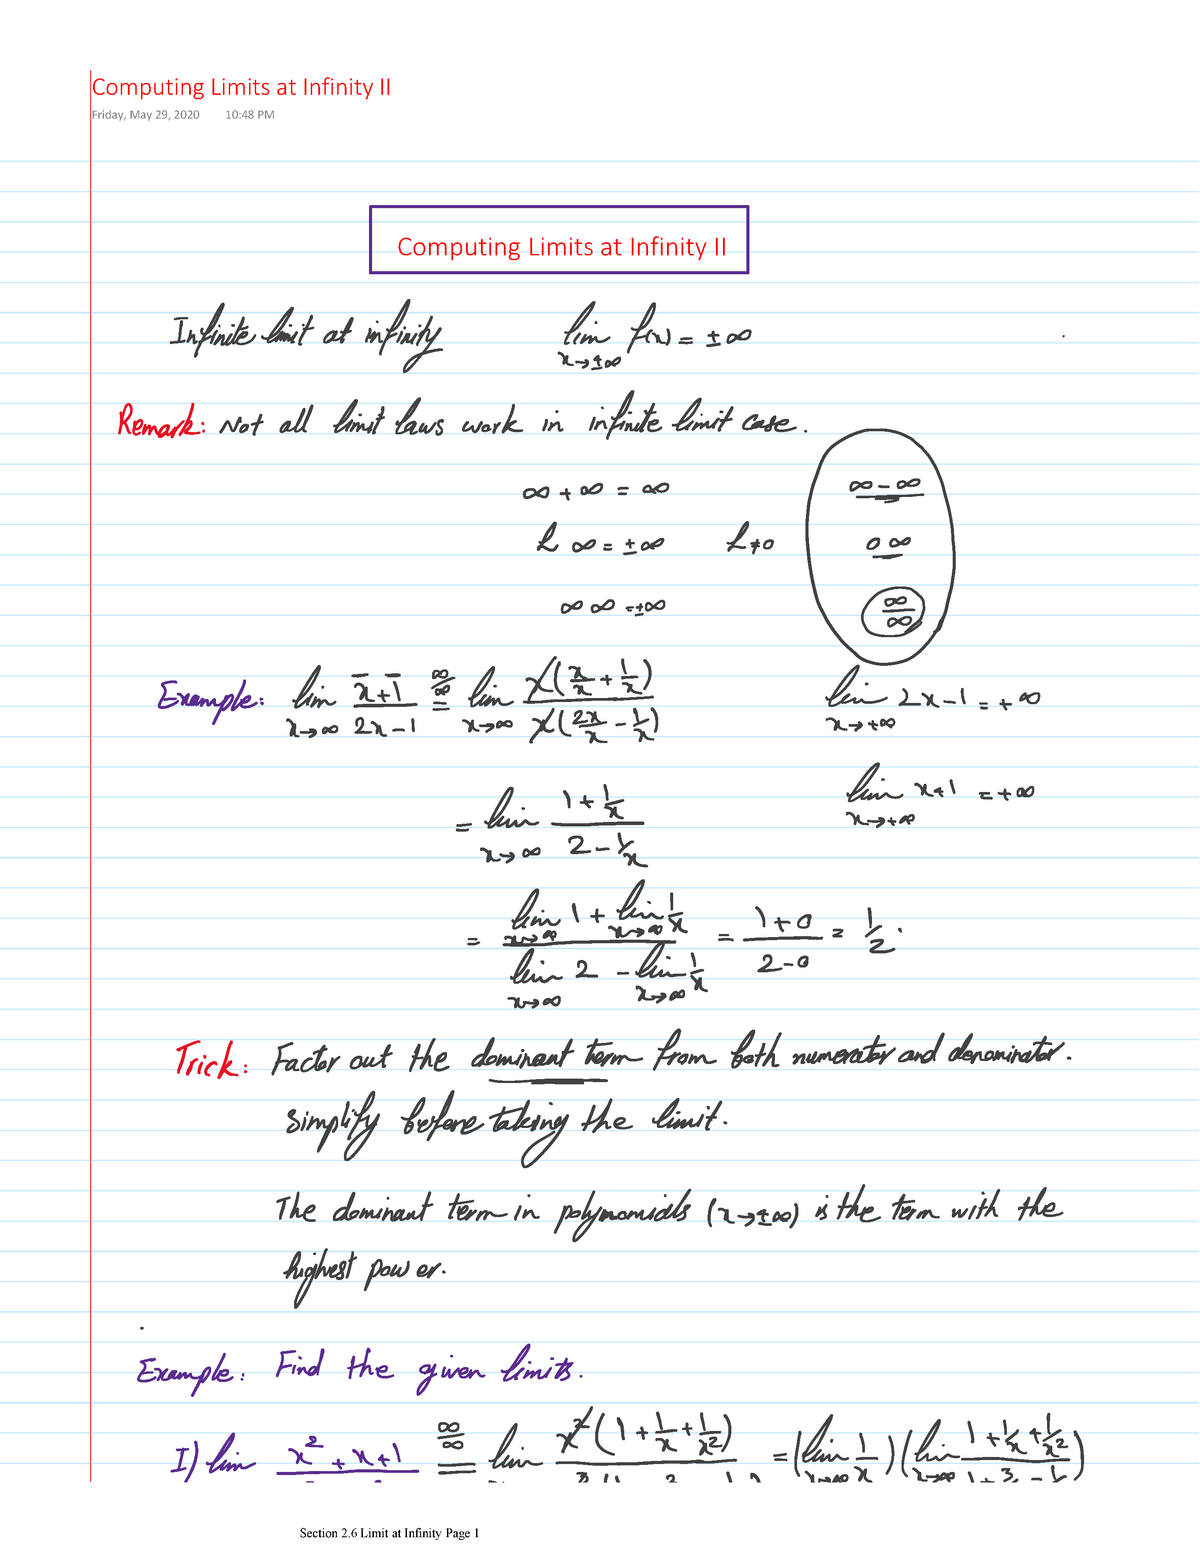 Computing Limits at Infinity II
Friday, May 29, 2020 10:48 PM
Computing Limits at Infinity II
Infinite limit at infinity lim f(x) = ±∞
x→±∞
Remark: Not all limit laws work in infinite limit case.
∞ + ∞ = ∞ ∞ - ∞
L ∞ = ±∞ L≠0 0 ∞
∞ ∞ = ±∞ ∞/∞
Example: lim x+1 / 2x-1 ∞/∞ = lim x(x/x + 1/x) / x(2x/x - 1/x) lim 2x-1 = +∞
x→∞ x→∞ x→+∞
= lim 1+1/x / 2-1/x lim x+1 = +∞
x→∞ x→+∞
= lim 1 + lim 1/x / lim 2 - lim 1/x = 1+0 / 2-0 = 1/2.
x→∞ x→∞ x→∞ x→∞
Trick: Factor out the dominant term from both numerator and denominator.
simplify before taking the limit.
The dominant term in polynomials (x→±∞) is the term with the
highest power.
Example: Find the given limits.
I) lim x²+x+1 ∞/∞ = lim x²(1+1/x+1/x²) = (lim 1/x)(lim 1+1/x+1/x²)
x→∞ x x→∞ 1+3
Section 2.6 Limit at Infinity Page 1